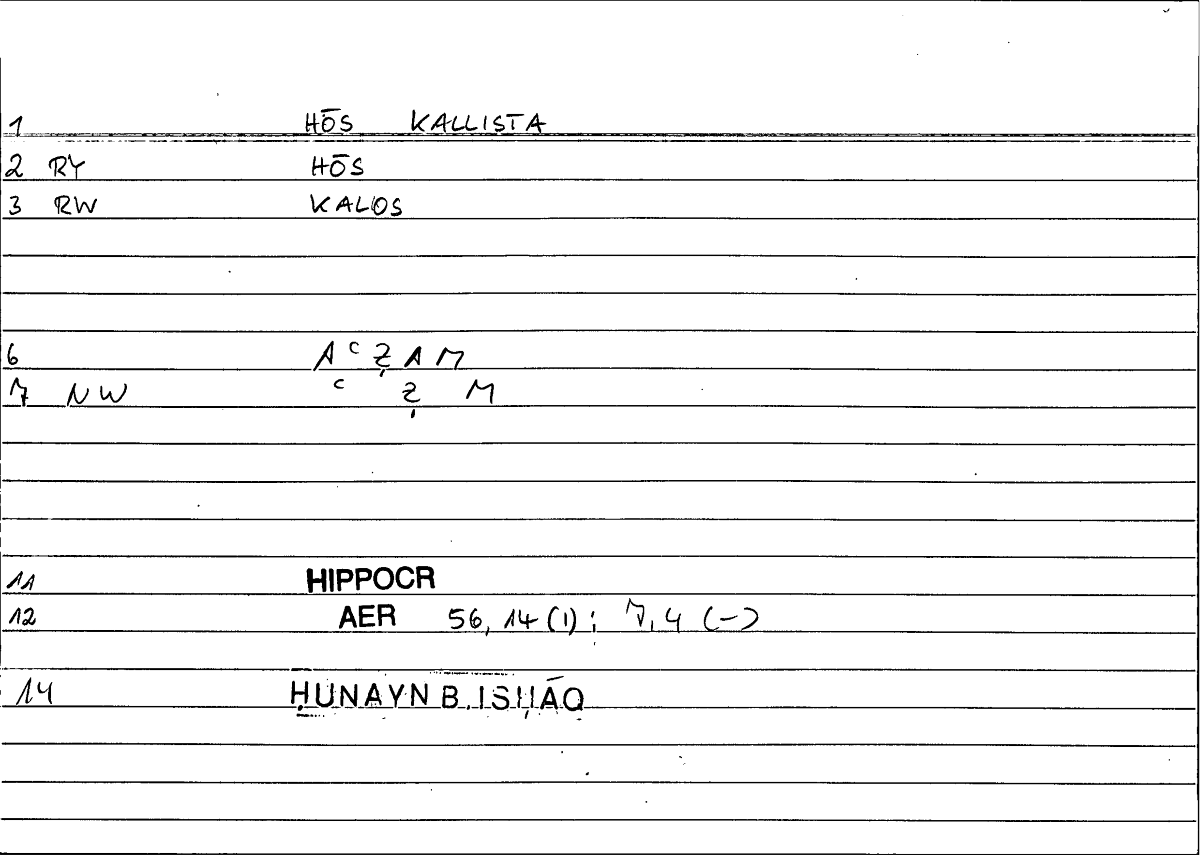 1 HŌS KALLISTA
2 RY HŌS
3 RW KALOS
6 AʿẒAM
7 NW ʿ Ẓ M
11 HIPPOCR
12 AER 56, 14 (1) ; 7, 4 (-)
14 ḤUNAYN B. ISḤĀQ